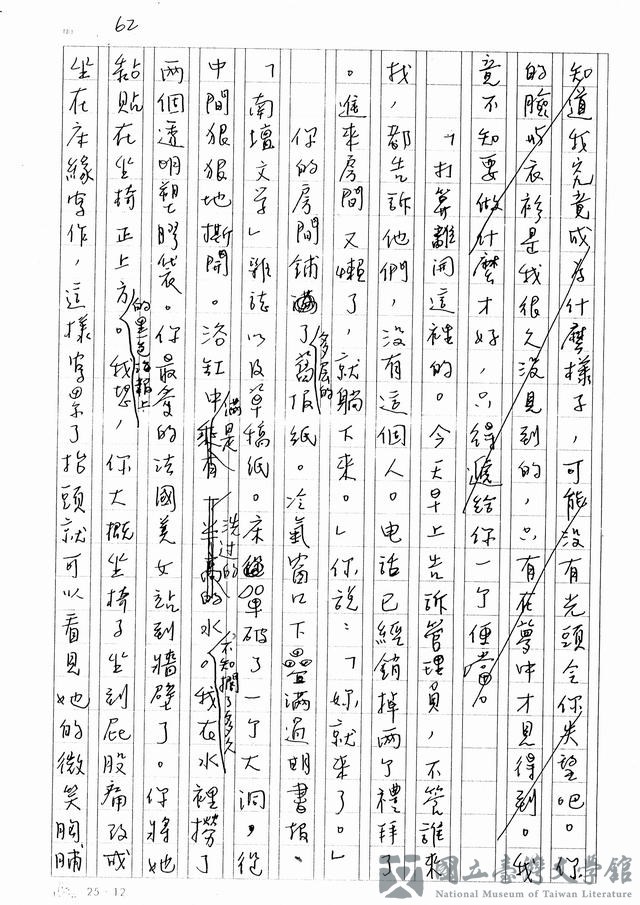 62
知道我究竟成為什麼樣子，可能沒有光頭令你失望吧。你
的臉與衣衫是我很久沒見到的，只有在夢中才見得到。我
竟不知要做什麼才好，只得遞給你一個便當。
「打算離開這裡的。今天早上告訴管理員，不管誰來
找，都告訴他們，沒有這個人。電話已經銷掉兩個禮拜了
。進來房間又懶了，就躺下來。」你說：「妳就來了。」
你的房間鋪滿了多層的舊報紙。冷氣窗口下疊滿過期書報、
「南壇文學」雜誌以及草稿紙。床單破了一個大洞，從
中間狠狠地撕開。浴缸中儘是洗過的不知擱了多久的水。我在水裡撈了
兩個透明塑膠袋。你最愛的法國美女站到牆壁了。你將她
黏貼在坐椅正上方的黑色海報上。我想，你大概坐椅子坐到屁股痛改成
坐在床緣寫作，這樣寫累了抬頭就可以看見她的微笑胸脯
25 - 12
國立臺灣文學館
National Museum of Taiwan Literature